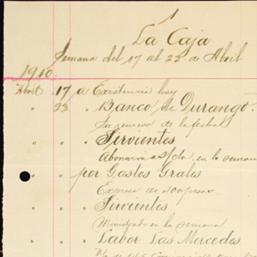 1
La Caja
Semana del 17 al 22 de Abril
1910.
Abril 17 a Existencia hoy
" 22 " Banco de Durango.
" " " Sirvientes
Abonaron a s/cta en la semana
" " por Gastos Grales
" " " Sirvientes
Ministrado en la semana
" " " Labor Las Mercedes